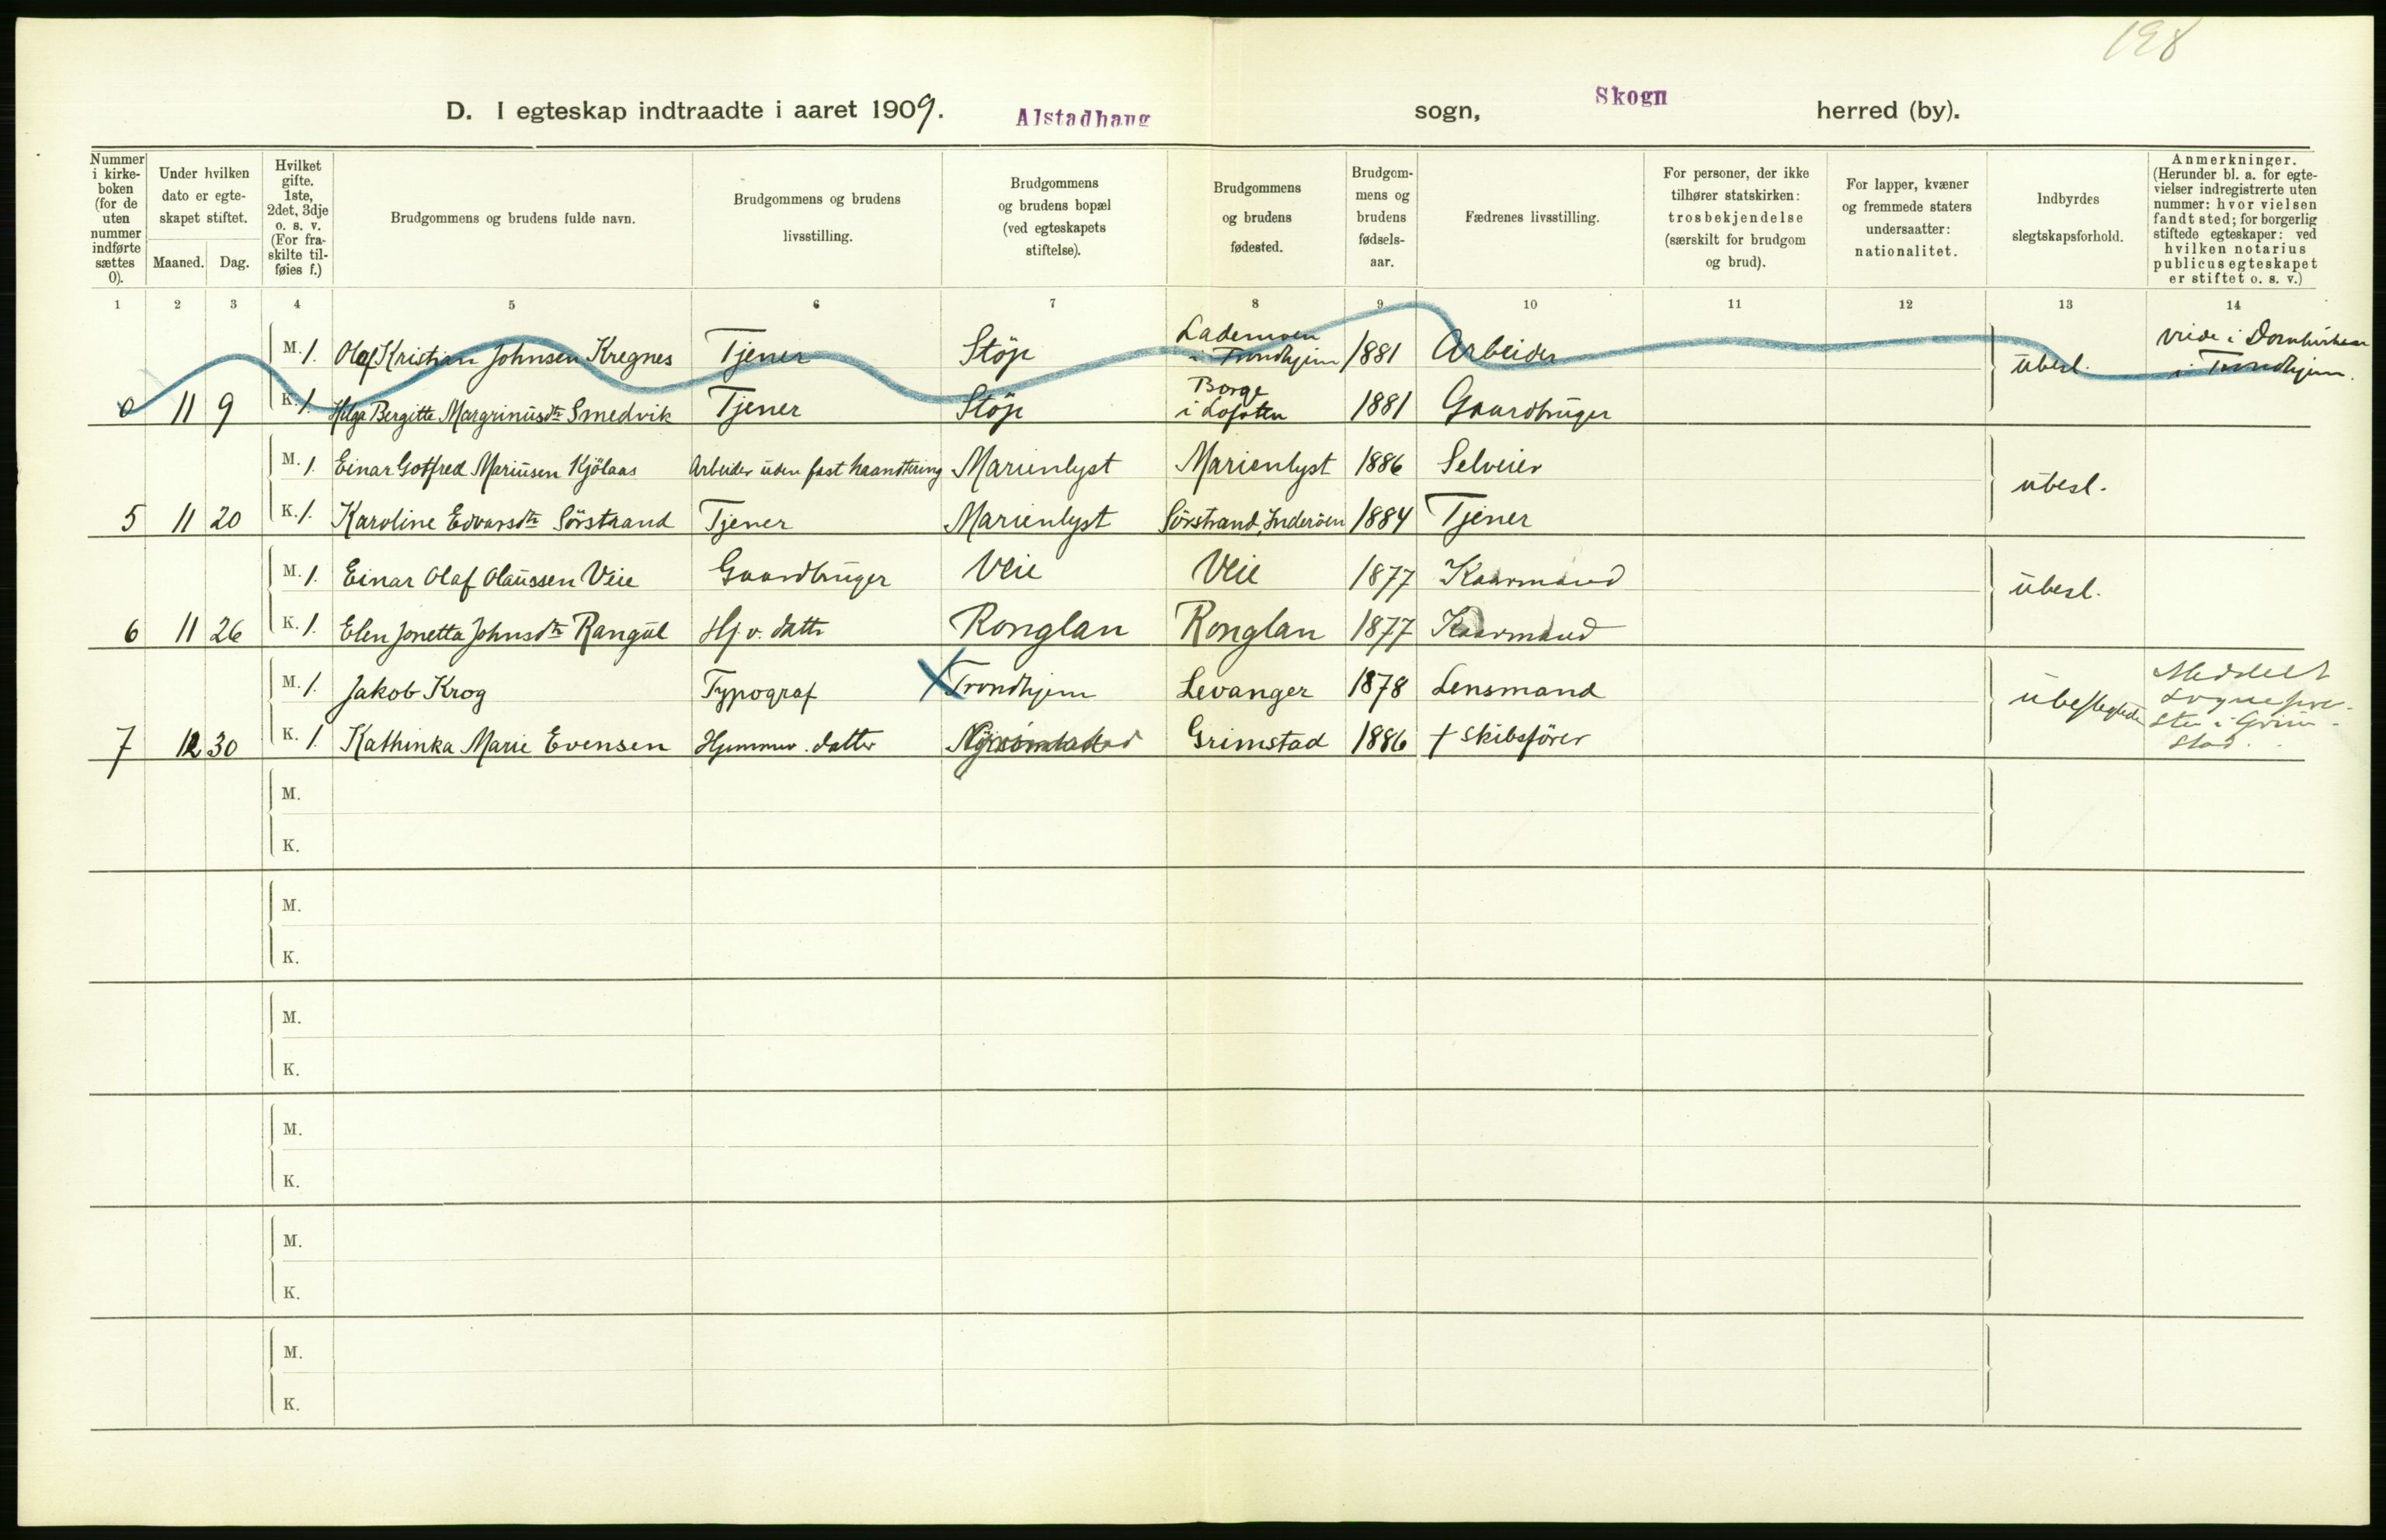 198
D. I egteskap indtraadte i aaret 1909. Alstadhaug sogn, Skogn herred (by).
Nummer i kirke- boken (for de uten nummer indførte sættes 0).
Under hvilken dato er egte- skapet stiftet.
Maaned. Dag.
Hvilket gifte. 1ste, 2det, 3dje o. s. v. (For fra- skilte til- føies f.)
Brudgommens og brudens fulde navn.
Brudgommens og brudens livsstilling.
Brudgommens og brudens bopæl (ved egteskapets stiftelse).
Brudgommens og brudens fødested.
Brudgom- mens og brudens fødsels- aar.
Fædrenes livsstilling.
For personer, der ikke tilhører statskirken: trosbekjendelse (særskilt for brudgom og brud).
For lapper, kvæner og fremmede staters undersaatter: nationalitet.
Indbyrdes slegtskapsforhold.
Anmerkninger. (Herunder bl. a. for egte- vielser indregistrerte uten nummer: hvor vielsen fandt sted; for borgerlig stiftede egteskaper: ved hvilken notarius publicus egteskapet er stiftet o. s. v.)
1 2 3 4 5 6 7 8 9 10 11 12 13 14
M. 1. Olaf Kristian Johnsen Kregnes Tjener Stöp Lademoen i Trondhjem 1881 Arbeider ubesl. viede i Domkirken i Trondhjem.
0 11 9 K. 1. Helga Bergitte Margrinusdtr Smedvik Tjener Stöp Borge i Lofoten 1881 Gaardbruger
M. 1. Einar Gotfred Mariusen Kjölaas Arbeider uden fast haandtering Marienlyst Marienlyst 1886 Selveier ubesl.
5 11 20 K. 1. Karoline Edvarsdtr Sörstrand Tjener Marienlyst Sörstrand, Inderöen 1884 Tjener
M. 1. Einar Olaf Olaussen Veie Gaardbruger Veie Veie 1877 Kaarmand ubesl.
6 11 26 K. 1. Elen Jonetta Johnsdtr Rangul Hj.v. datter Ronglan Ronglan 1877 Kaarmand
M. 1. Jakob Krog Typograf Trondhjem Levanger 1878 Lensmand ubeslegtede Meddelt Sognepre- sten i Grim- stad.
7 12 30 K. 1. Kathinka Marie Evensen Hjemmev. datter Grimstad 1886 † Skibsförer
M.
K.
M.
K.
M.
K.
M.
K.
M.
K.
M.
K.